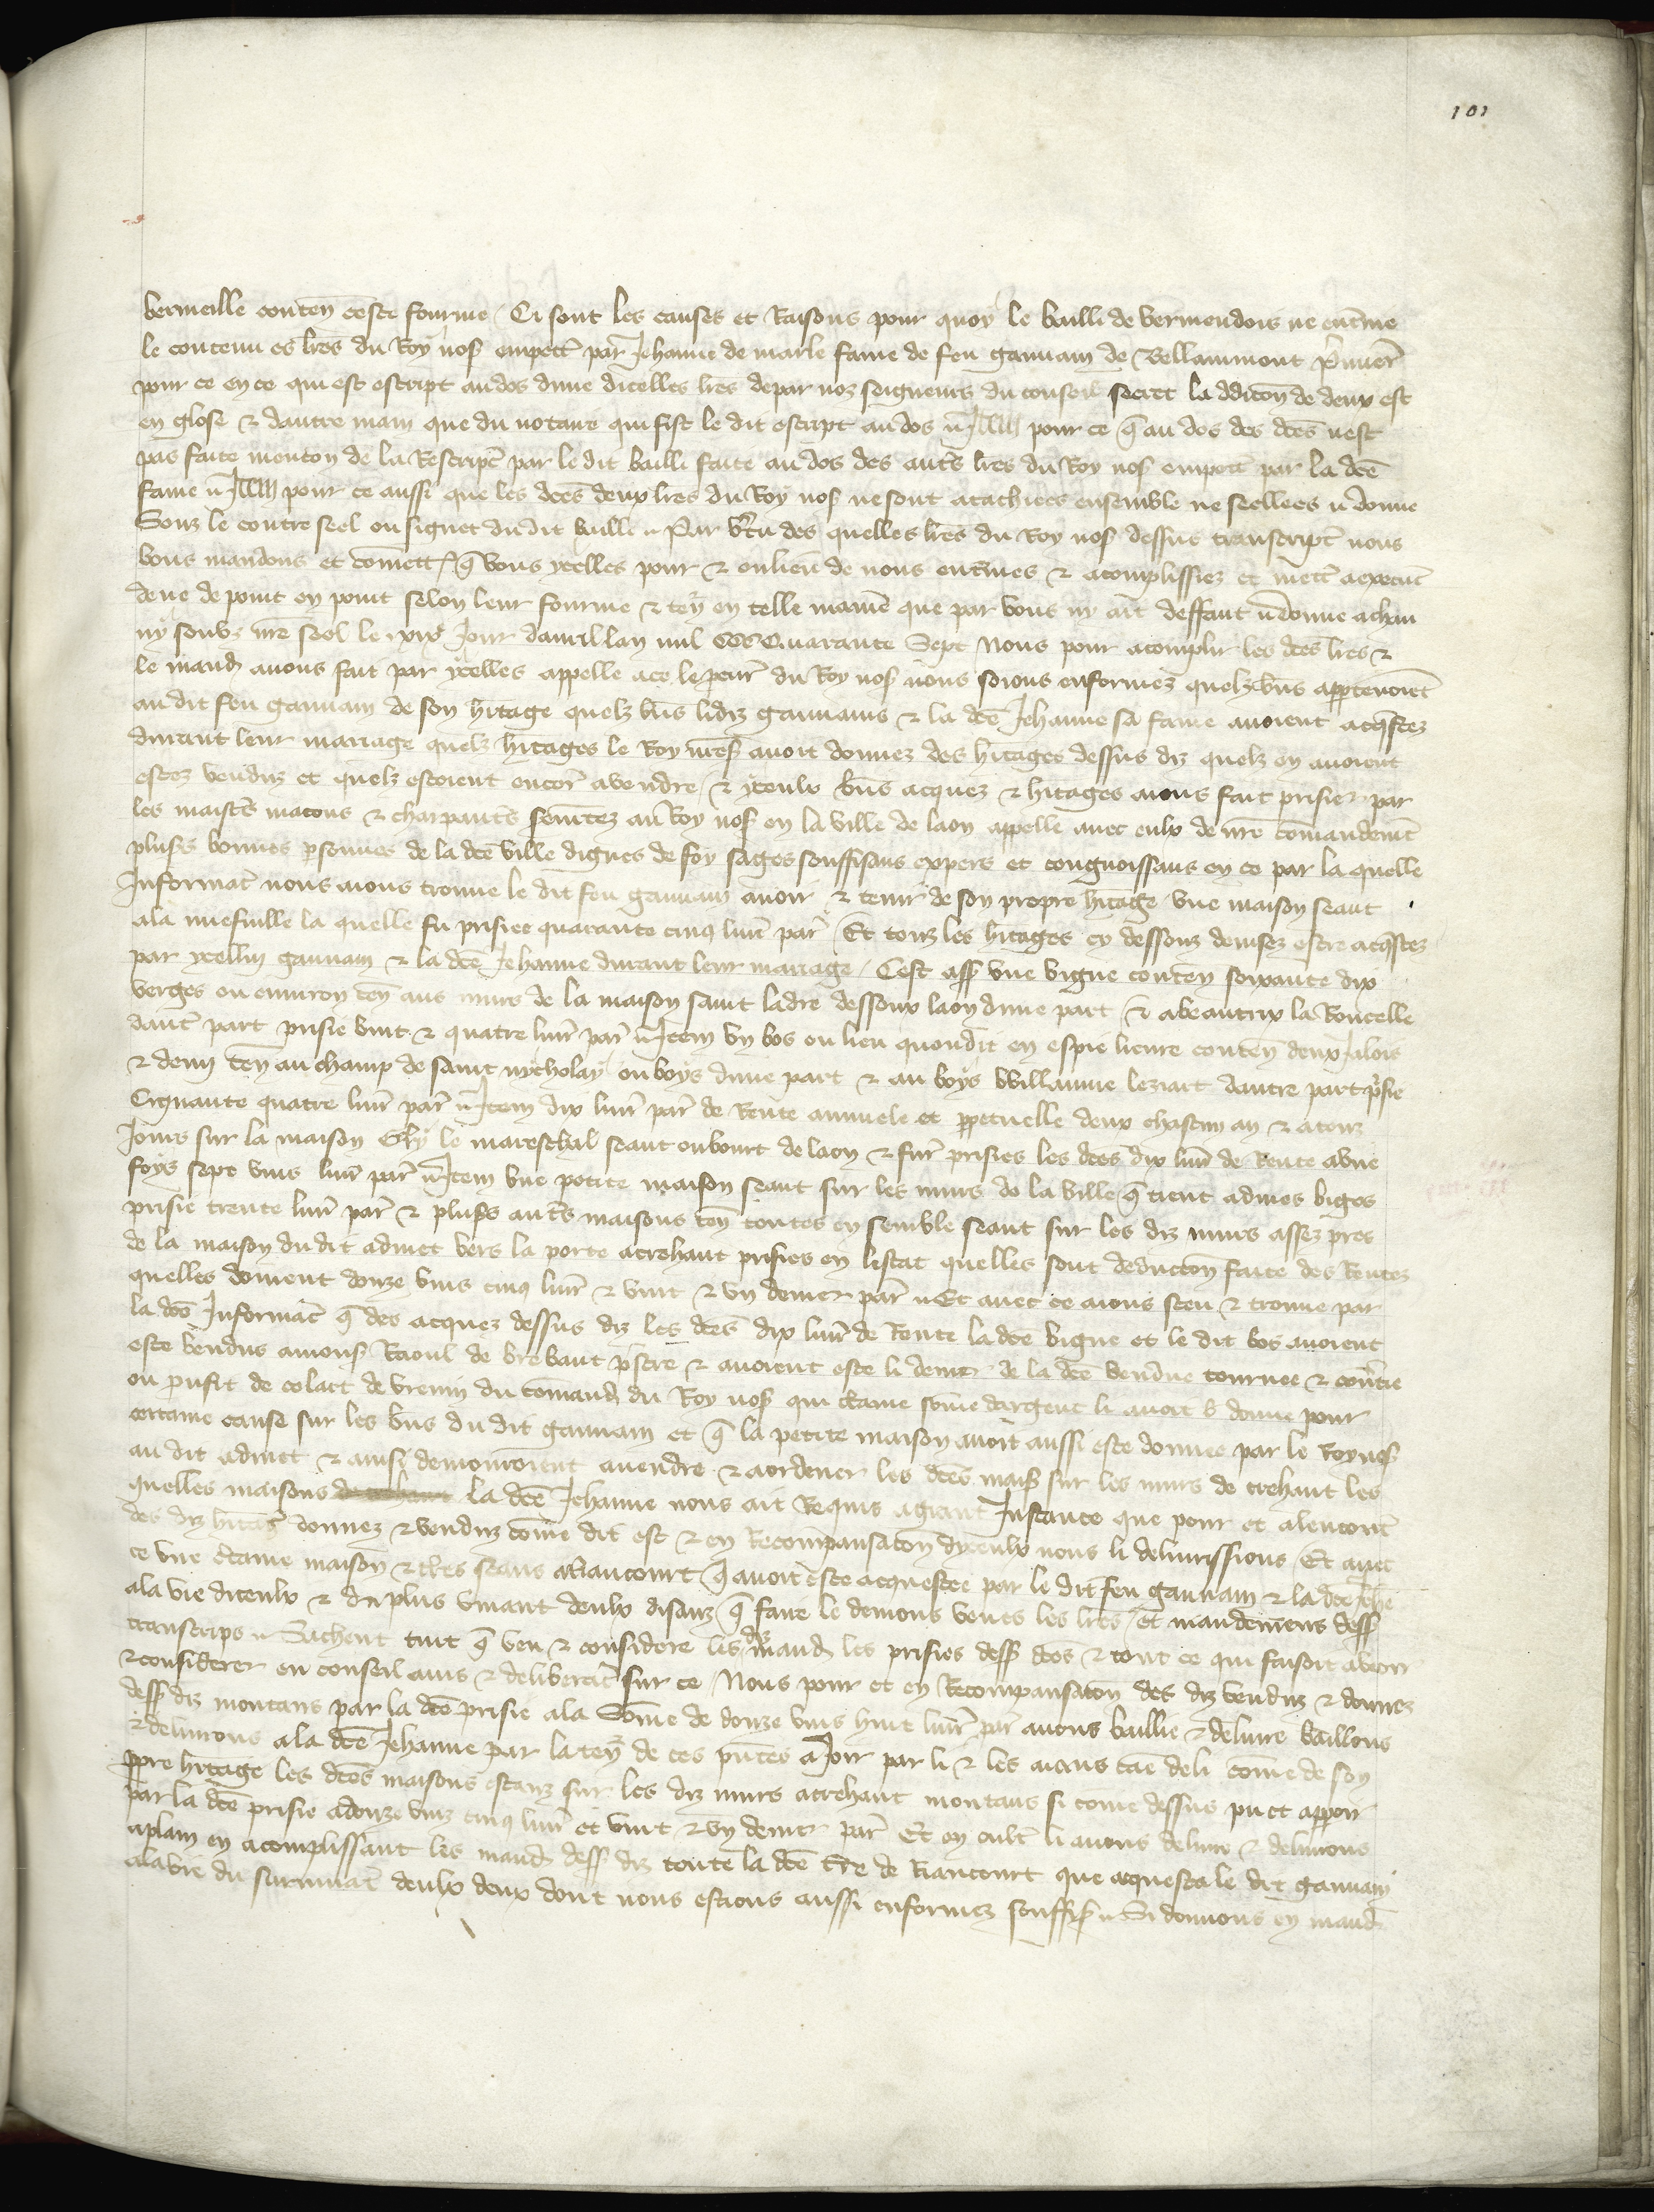 101
vermeille conten̄ ceste fourme / Ci sont les causes et Raisons pour quoy le bailli de vermendois ne ent̄ine
le contenu es lr̄es du Roy nos̄ empett̄ par Jehanne de marle fame de feu gauuain de Bellammont
pour ce en ce qui est escript au dos dune dicelles lr̄es de par noz seigneurs du conseil secret la ddicon̄ de deux est
en glose & dautre main que du notaire qui fist le dit escript au dos Item pour ce q̄ au dos des dc̄es nest
pas faite mention de la Rescript̄ par le dit bailli faite au dos des autr̄s lr̄es du Roy nos̄ empetr̄ par la dc̄e
fame Item pour ce aussi que les dc̄es deux lr̄es du Roy nos̄ ne sont atachiees ensemble ne seellees donne
Souz le contre seel ou signet du dit bailli Par v̄tu des quelles lr̄es du Roy nos̄ dessus transcript̄ nous
vous mandons et com̄ett̄ q̄ vous ycelles pour & ou lieu de nous ent̄ines & acomplissiez et mett̄ a execut̄
deue de point en point selon leur fourme & ten̄ en telle manie que par vous ny ait deffaut donne a chau
ny souz nr̄e seel le xxixe Jour dauril lan mil CCC Quarante Sept Nous pour acomplir les dc̄es lr̄es &
le mand̄ auons fait par ycelles appelle a ce le peur̄ du Roy nos̄ nous soions enformez quelz biēs appartenoiēt
au dit feu gauuain de son h̄itage quelz biēs lidiz gauuains & la dc̄e Jehanne sa fame auoient acq̄stez
durant leur mariage quelz h̄itages le Roy nr̄es̄ auoit donnez des h̄itages dessus diz quelz en auoient
estez venduz et quelz estoient encor̄ a vendre & yceulx biēs acquez & h̄itages auons fait prisier par
les maistr̄s macons & charpantr̄s sermētez au Roy nos̄ en la ville de laon appelle auec eulx de nr̄e com̄andemt̄
plus̄s bonnes p̄sonnes de la dc̄e ville dignes de foy sages souffisans expers et congnoissans en ce par la quelle
Informat̄ nous auons trouue le dit feu gauuain auoir & tenir de son propre h̄itage vne maison seant
a la nuefuille la quelle fu prisiee quarante cinq liur̄ par̄ Et touz les h̄itages cy dessouz deuisez estre acq̄stez
par ycelluy gauuain & la dc̄e Jehanne durant leur mariage / Cest ass̄ vne vigne conten̄ soixante dix
verges ou enuiron ten̄ aus murs de la maison saint ladre dessoux laon dune part & a beautrix la Roucelle
dautr̄ part prisie vint & quatre liur̄ par̄ Item vn bos ou lieu quondit en espie lieure conten̄ deux Jalois
& demj ten̄ au champ de saint nycholay ou boys dune part & au boys Willaume leziart dautre part p̄sie
Cignante quatre liur̄ par̄ Item dix liur̄ par̄ de Rente annuele et ꝑpetuelle deux chascun an & a touz
Jours sur la maison Gly le mareschal seant ou bourt de laon & sur̄ prisies les dc̄es dix liur̄ de Rente a vne
foys sept vins liur̄ par̄ Item vne petite maison seant sur les murs de la ville q̄ tient admes biges
prisie trente liur̄ par̄ & plus̄s autr̄s maisons ten̄ toutes en semble seant sur les diz murs assez pres
de la maison du dit admet vers la porte a trehaut prisies en lestat quelles sont deduccon̄ faite des Rentes
quelles doiuent douze vins cinq liur̄ & vint & vn denier par̄ Et auec ce auons sceu & trouue par
la dc̄e Informat̄ q̄ des acquez dessus diz les dc̄es dix liur̄ de Rente la dc̄e vigne et le dit bos auoient
este vendus a mons̄ Raoul de brebaut p̄stre & auoient este li denier de la dc̄e vendue tournee & conūtie
ou proufit de colart de vreuin du com̄and̄ du Roy nos̄ qui ctaine som̄e dargent li auoit donne pour
certaine cause sur les biēs du dit gauuain et q̄ la petite maison auoit aussi este donnee par le Roy nos̄
au dit admet & ainsi demouroient a uendre & a ordener les dc̄es mais̄ sur les murs de trehaut les
quelles maisons la dc̄e Jehanne nous ait Requis a grant Instance que pour et alencontr̄
des diz h̄itaḡ donnez & venduz com̄e dit est & en Recompansacon̄ dyceulx nous li deliurissions Et auec
ce vne c̄taine maison & t̄res seans a Riancourt q̄ auoit este acquestee par le dit feu gauuain & la dc̄e Jeh̄e
a la vie diceulx & du plus viuant deulx disanz q̄ faire le deuions veues les lr̄es / et mandemens dess̄
transcrips Sachent tuit q̄ veu & considere les diz mand̄ les prisies dess̄ dc̄es & tout ce qui faisoit a veoir
& considerer en conseil auis & deliberat̄ sur ce / Nous pour et en Recompansacon̄ des diz venduz & donnez
dess̄ diz montans par la dc̄e prisie a la Som̄e de douze vins huit liur̄ par̄ auons baillie & deliure baillons
& deliurons a la dc̄e Jehanne par la ten̄ de ces pn̄tes a Joir par li & les aians cāe de li com̄e de son
ꝓpre h̄itage les dc̄es maisons estanz sur les diz murs a trehaut montans si come dessus puet apparoir
par la dc̄e prisie a douze vinz cinq liur̄ et vint & vn denier par̄ Et en oultr̄ li auons deliure & deliurons
a plain en acomplissant les mand̄ dess̄ diz toute la dc̄e t̄re de Riancourt que acquesta le dit gauuain
a la vie du suruiuāt deulx deux dont nous estions aussi enformez souffis̄ Si donnons en mand̄